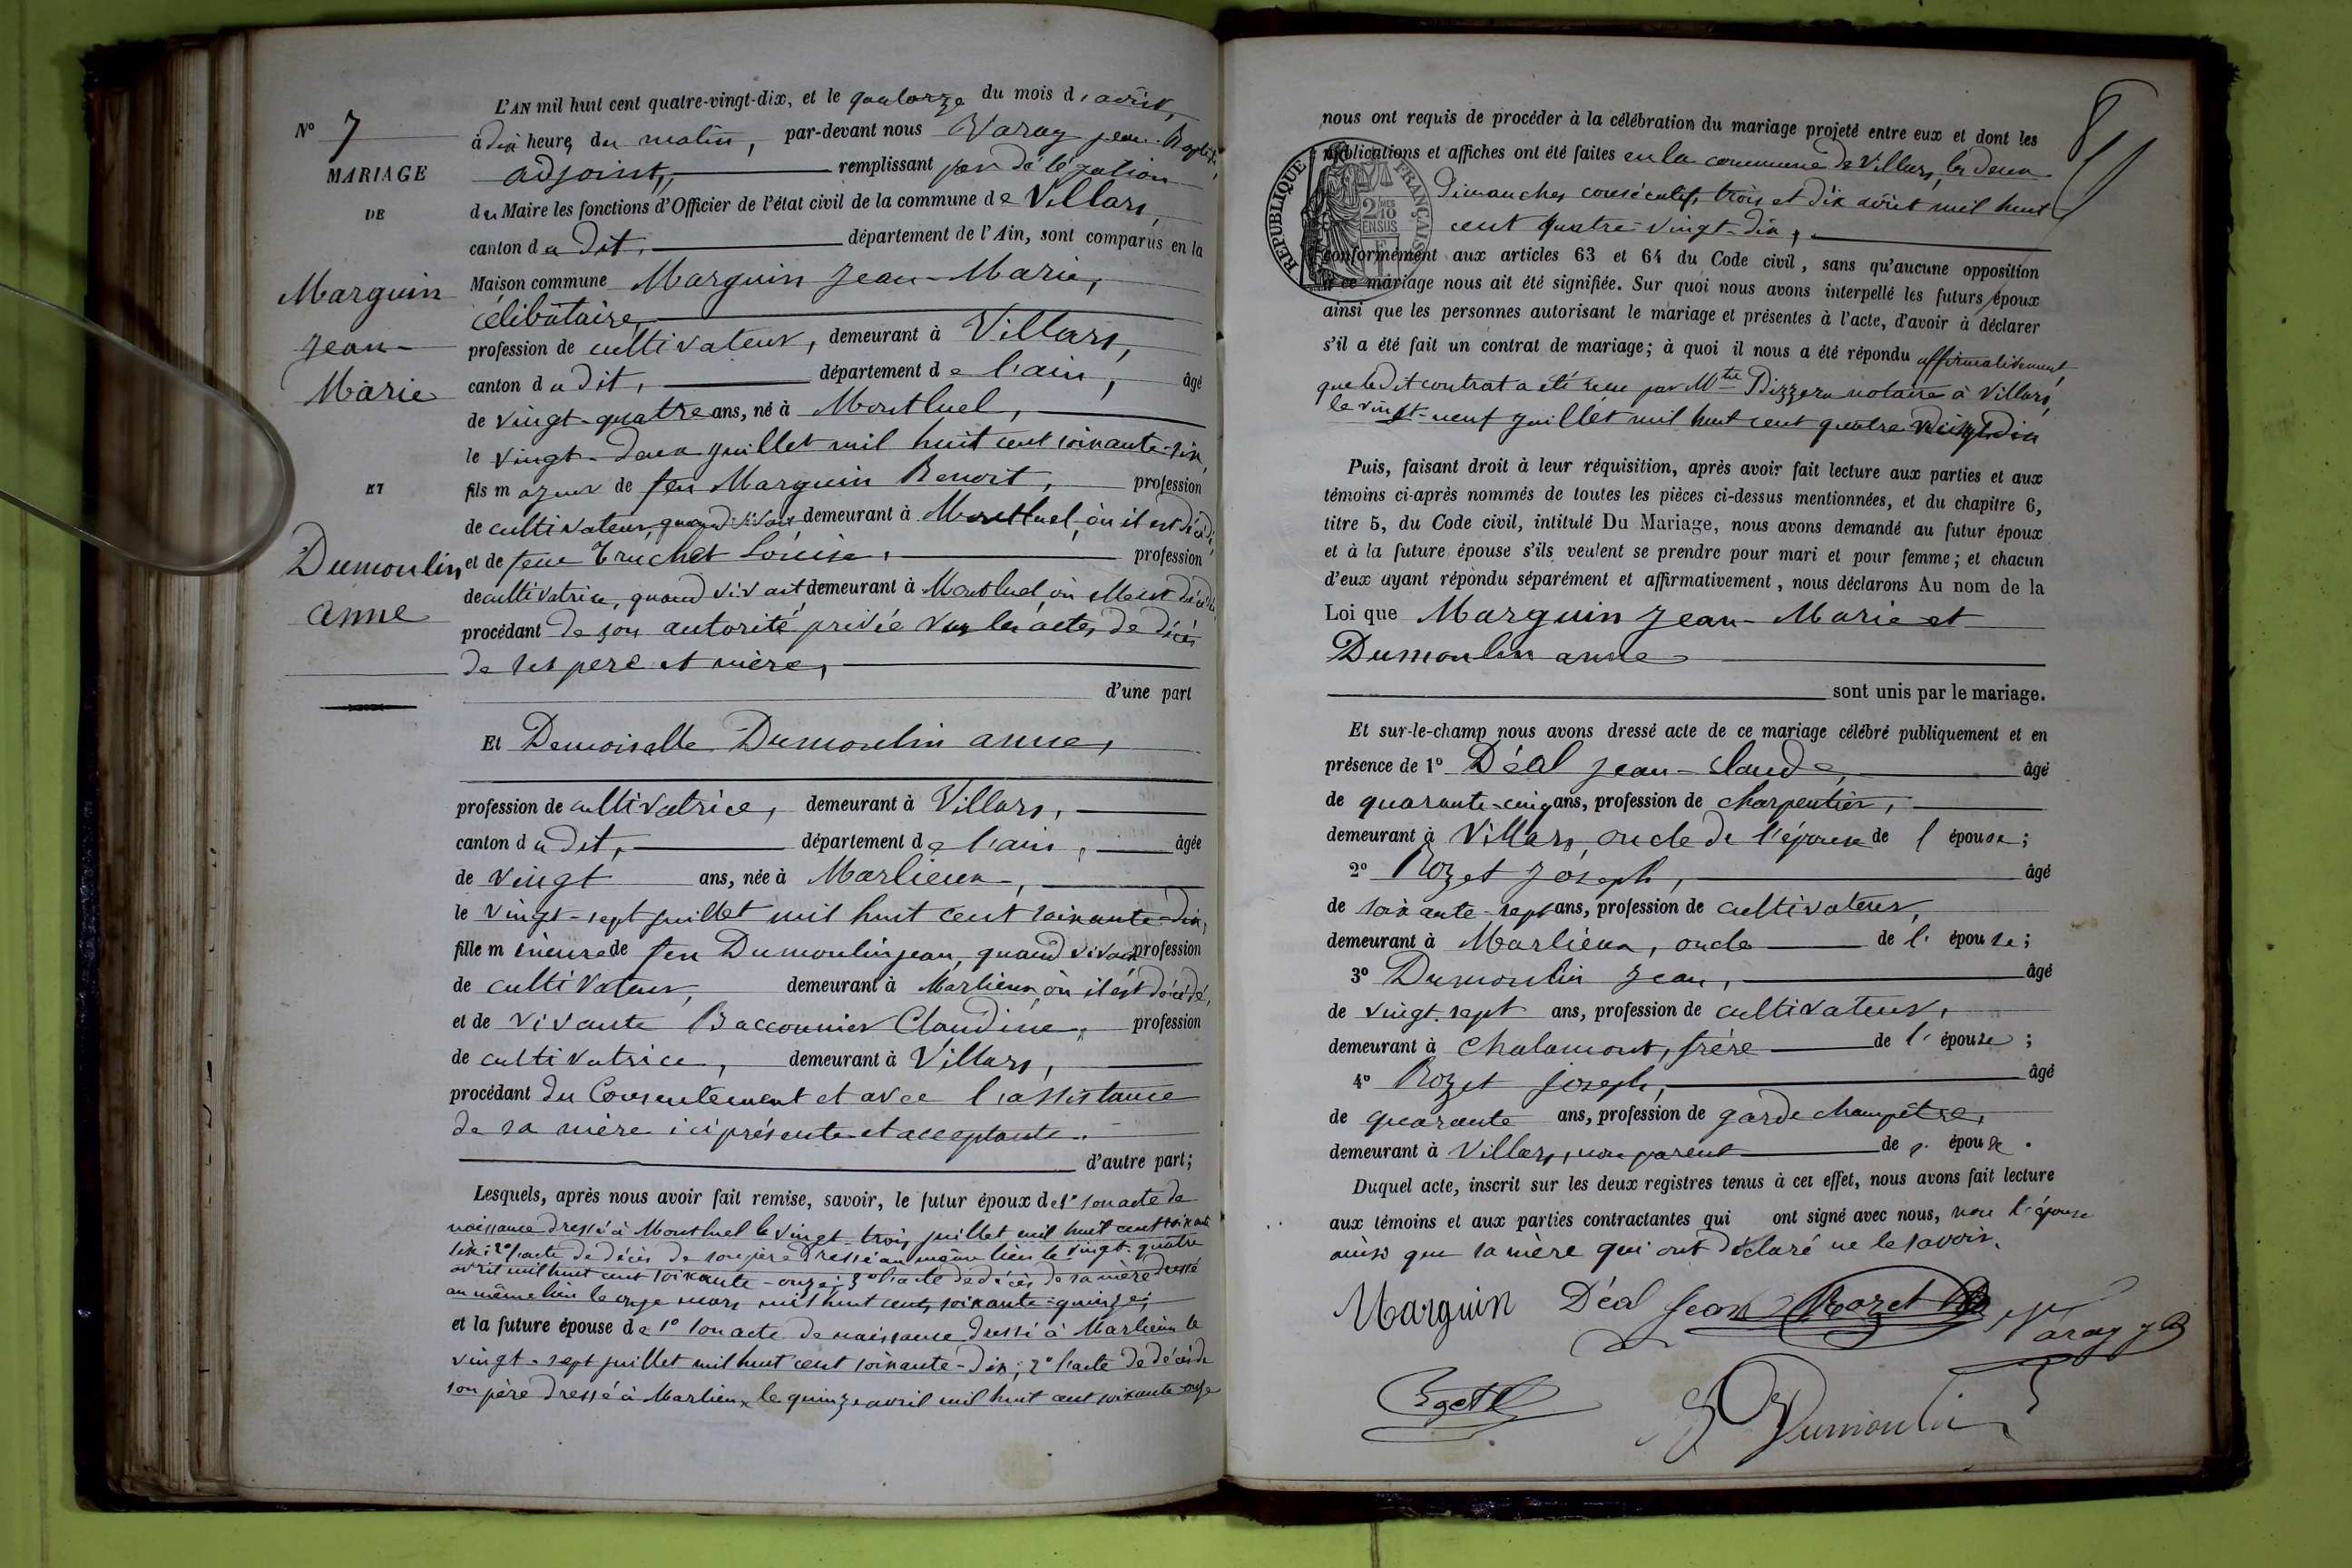 L'AN mil huit cent quatre-vingt-dix, et le quatorze du mois d'août,
N° 7
à dix heures du matin, par-devant nous Varay Jean-Baptiste,
MARIAGE
adjoint, remplissant par délégation
DE
du Maire les fonctions d'Officier de l'état civil de la commune de Villars,
canton du dit, département de l'Ain, sont comparus en la
Marguin
Jean-
Marie
Maison commune Marguin Jean-Marie,
célibataire,
profession de cultivateur, demeurant à Villars,
canton du dit, département de l'ain, âgé
de vingt-quatre ans, né à Montluel,
le vingt-deux juillet mil huit cent soixante-six,
ET
fils majeur de feu Marguin Benoit, profession
de cultivateur, quand vivait demeurant à Montluel, où il est décédé,
Dumoulin
anne
et de feue Truchet Louise, profession
de cultivatrice, quand vivait demeurant à Montluel où elle est décédée
procédant de son autorité privée vu les actes de décès
de ses père et mère,
d'une part
Et Demoiselle Dumoulin anne,
profession de cultivatrice, demeurant à Villars,
canton du dit, département de l'ain, âgée
de vingt ans, née à Marlieux,
le vingt-sept juillet mil huit cent soixante-dix,
fille mineure de feu Dumoulin jean, quand vivait profession
de cultivateur, demeurant à Marlieux où il est décédé,
et de vivante Baccounier Claudine, profession
de cultivatrice, demeurant à Villars,
procédant du Consentement et avec l'assistance
de sa mère ici présente et acceptante.
d'autre part;
Lesquels, après nous avoir fait remise, savoir, le futur époux de 1° son acte de
naissance dressé à Montluel le vingt-trois juillet mil huit cent soixante
six; 2° l'acte de décès de son père dressé au même lieu le vingt-quatre
avril mil huit cent soixante-onze; 3° l'acte de décès de sa mère dressé
au même lieu le onze mars mil huit cent soixante-quinze;
et la future épouse de 1° son acte de naissance dressé à Marlieux le
vingt-sept juillet mil huit cent soixante-dix; 2° l'acte de décès de
son père dressé à Marlieux le quinze avril mil huit cent soixante-onze
8
nous ont requis de procéder à la célébration du mariage projeté entre eux et dont les
publications et affiches ont été faites en la commune de Villars, les deux
dimanches consécutifs, trois et dix août mil huit
cent quatre-vingt-dix,
RÉPUBLIQUE FRANÇAISE
2/10 EN SUS
conformément aux articles 63 et 64 du Code civil, sans qu'aucune opposition
à ce mariage nous ait été signifiée. Sur quoi nous avons interpellé les futurs époux
ainsi que les personnes autorisant le mariage et présentes à l'acte, d'avoir à déclarer
s'il a été fait un contrat de mariage; à quoi il nous a été répondu affirmativement,
que le dit contrat a été reçu par Mtre notaire à Villars,
le vingt-neuf juillet mil huit cent quatre vingt dix
Puis, faisant droit à leur réquisition, après avoir fait lecture aux parties et aux
témoins ci-après nommés de toutes les pièces ci-dessus mentionnées, et du chapitre 6,
titre 5, du Code civil, intitulé Du Mariage, nous avons demandé au futur époux
et à la future épouse s'ils veulent se prendre pour mari et pour femme; et chacun
d'eux ayant répondu séparément et affirmativement, nous déclarons Au nom de la
Loi que Marguin Jean-Marie et
Dumoulin anne
sont unis par le mariage.
Et sur-le-champ nous avons dressé acte de ce mariage célébré publiquement et en
présence de 1° Déal Jean-Claude, âgé
de quarante-cinq ans, profession de charpentier,
demeurant à Villars, oncle de l'épouse de l épouse;
2° Rozet Joseph, âgé
de soixante-sept ans, profession de cultivateur,
demeurant à Marlieux, oncle de l' épouse;
3° Dumoulin Jean, âgé
de vingt-sept ans, profession de cultivateur,
demeurant à Chalamont, frère de l' épouse;
4° Rozet Joseph, âgé
de quarante ans, profession de garde champêtre,
demeurant à Villars, non parent de l' épouse.
Duquel acte, inscrit sur les deux registres tenus à cet effet, nous avons fait lecture
aux témoins et aux parties contractantes qui ont signé avec nous, non l'épouse
ainsi que sa mère qui ont déclaré ne le savoir.
Marguin Déal Jean Rozet Varay JB
Dumoulin